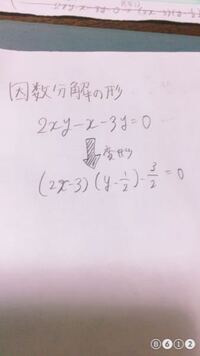 因数分解の形
2xy-x-3y=0
変形
(2x-3)(y-1/2)-3/2=0
B612